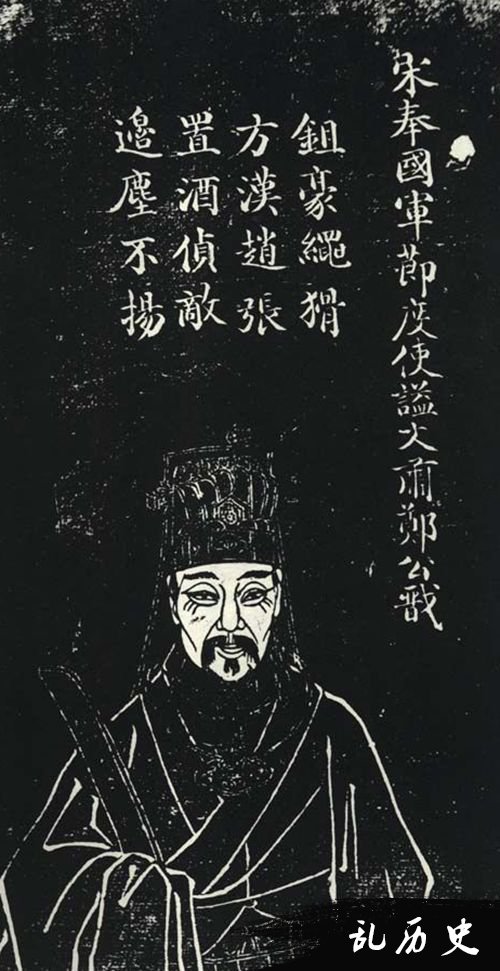 宋奉國軍節度使謚文肅鄭公戩
鉏豪繩猾
方漢趙張
置酒偵敵
邊塵不揚
乱历史